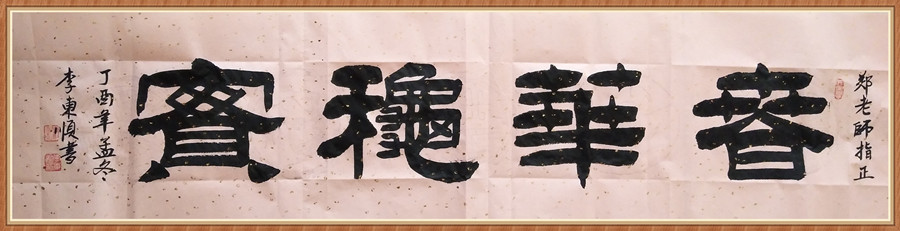 郑老师指正
春華穐實
丁酉年孟冬
李東順書